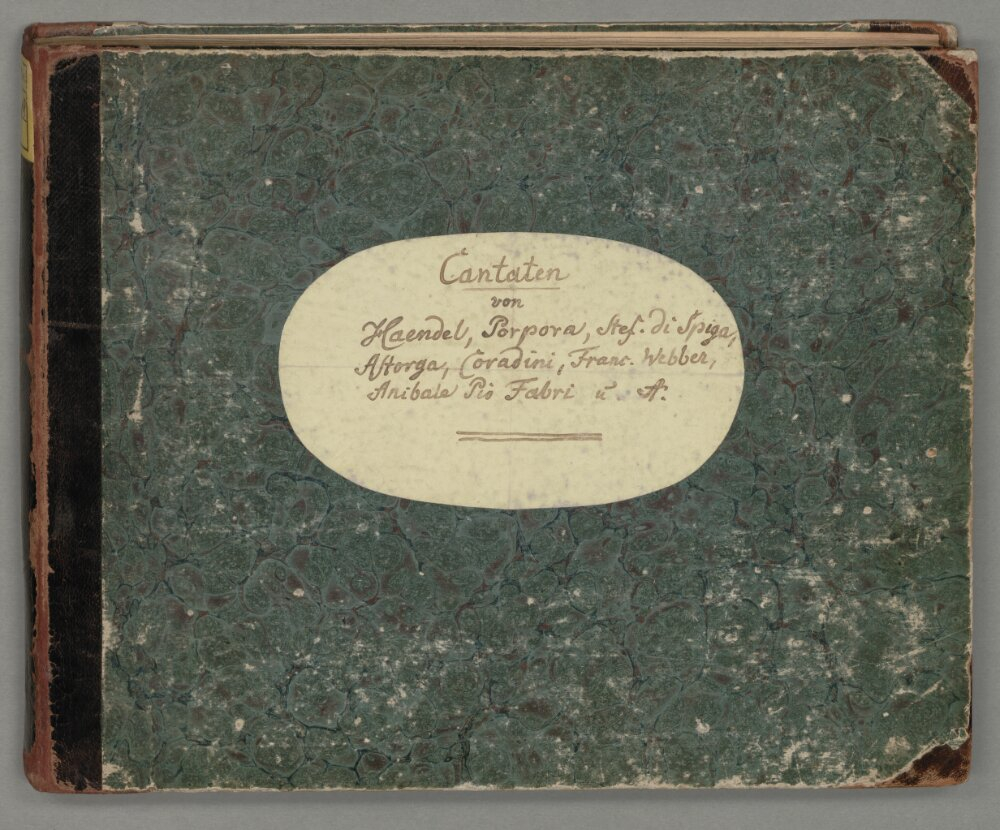 Cantaten
von
Haendel, Porpora, Stef. di Spiga,
Astorga, Coradini, Franc. Webber,
Anibale Pio Fabri ū A.